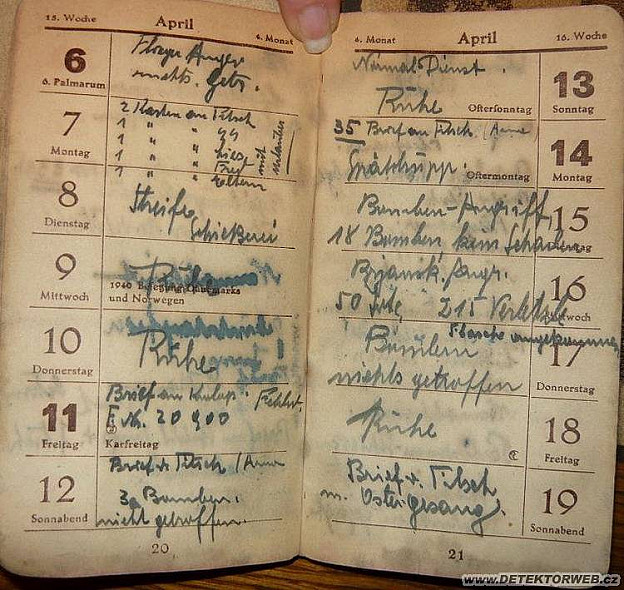 15. Woche April 4. Monat
6
6. Palmarum
Flieger Angr
nichts Getr.
7
Montag
2 Karten an Titsch
1 " "
1 " " Liese
1 " "
1 " " Eltern
mit
8
Dienstag
Streife
Schießerei
9
Mittwoch
Ruhe
1940 Besetzung Dänemarks
und Norwegen
10
Donnerstag
Ruhe
11
Freitag
Brief an
F. Nr. 20 900
Karfreitag
12
Sonnabend
Brief v. Titsch / Anne
3 Bomben.
nicht getroffen.
20
4. Monat April 16. Woche
Normal Dienst.
Ruhe
Ostersonntag
13
Sonntag
35 Brief an Titsch / Anne
Spähtrupp.
Ostermontag
14
Montag
Bomben-Angriff
18 Bomben kein Schaden
15
Dienstag
Brjansk. Angr.
50 tote 215 Verletzte
16
Mittwoch
Flasche angekommen
Bomben
nichts getroffen
17
Donnerstag
Ruhe
18
Freitag
Brief v. Titsch
m. Ostergesang.
19
Sonnabend
21
www.DETEKTORWEB.cz